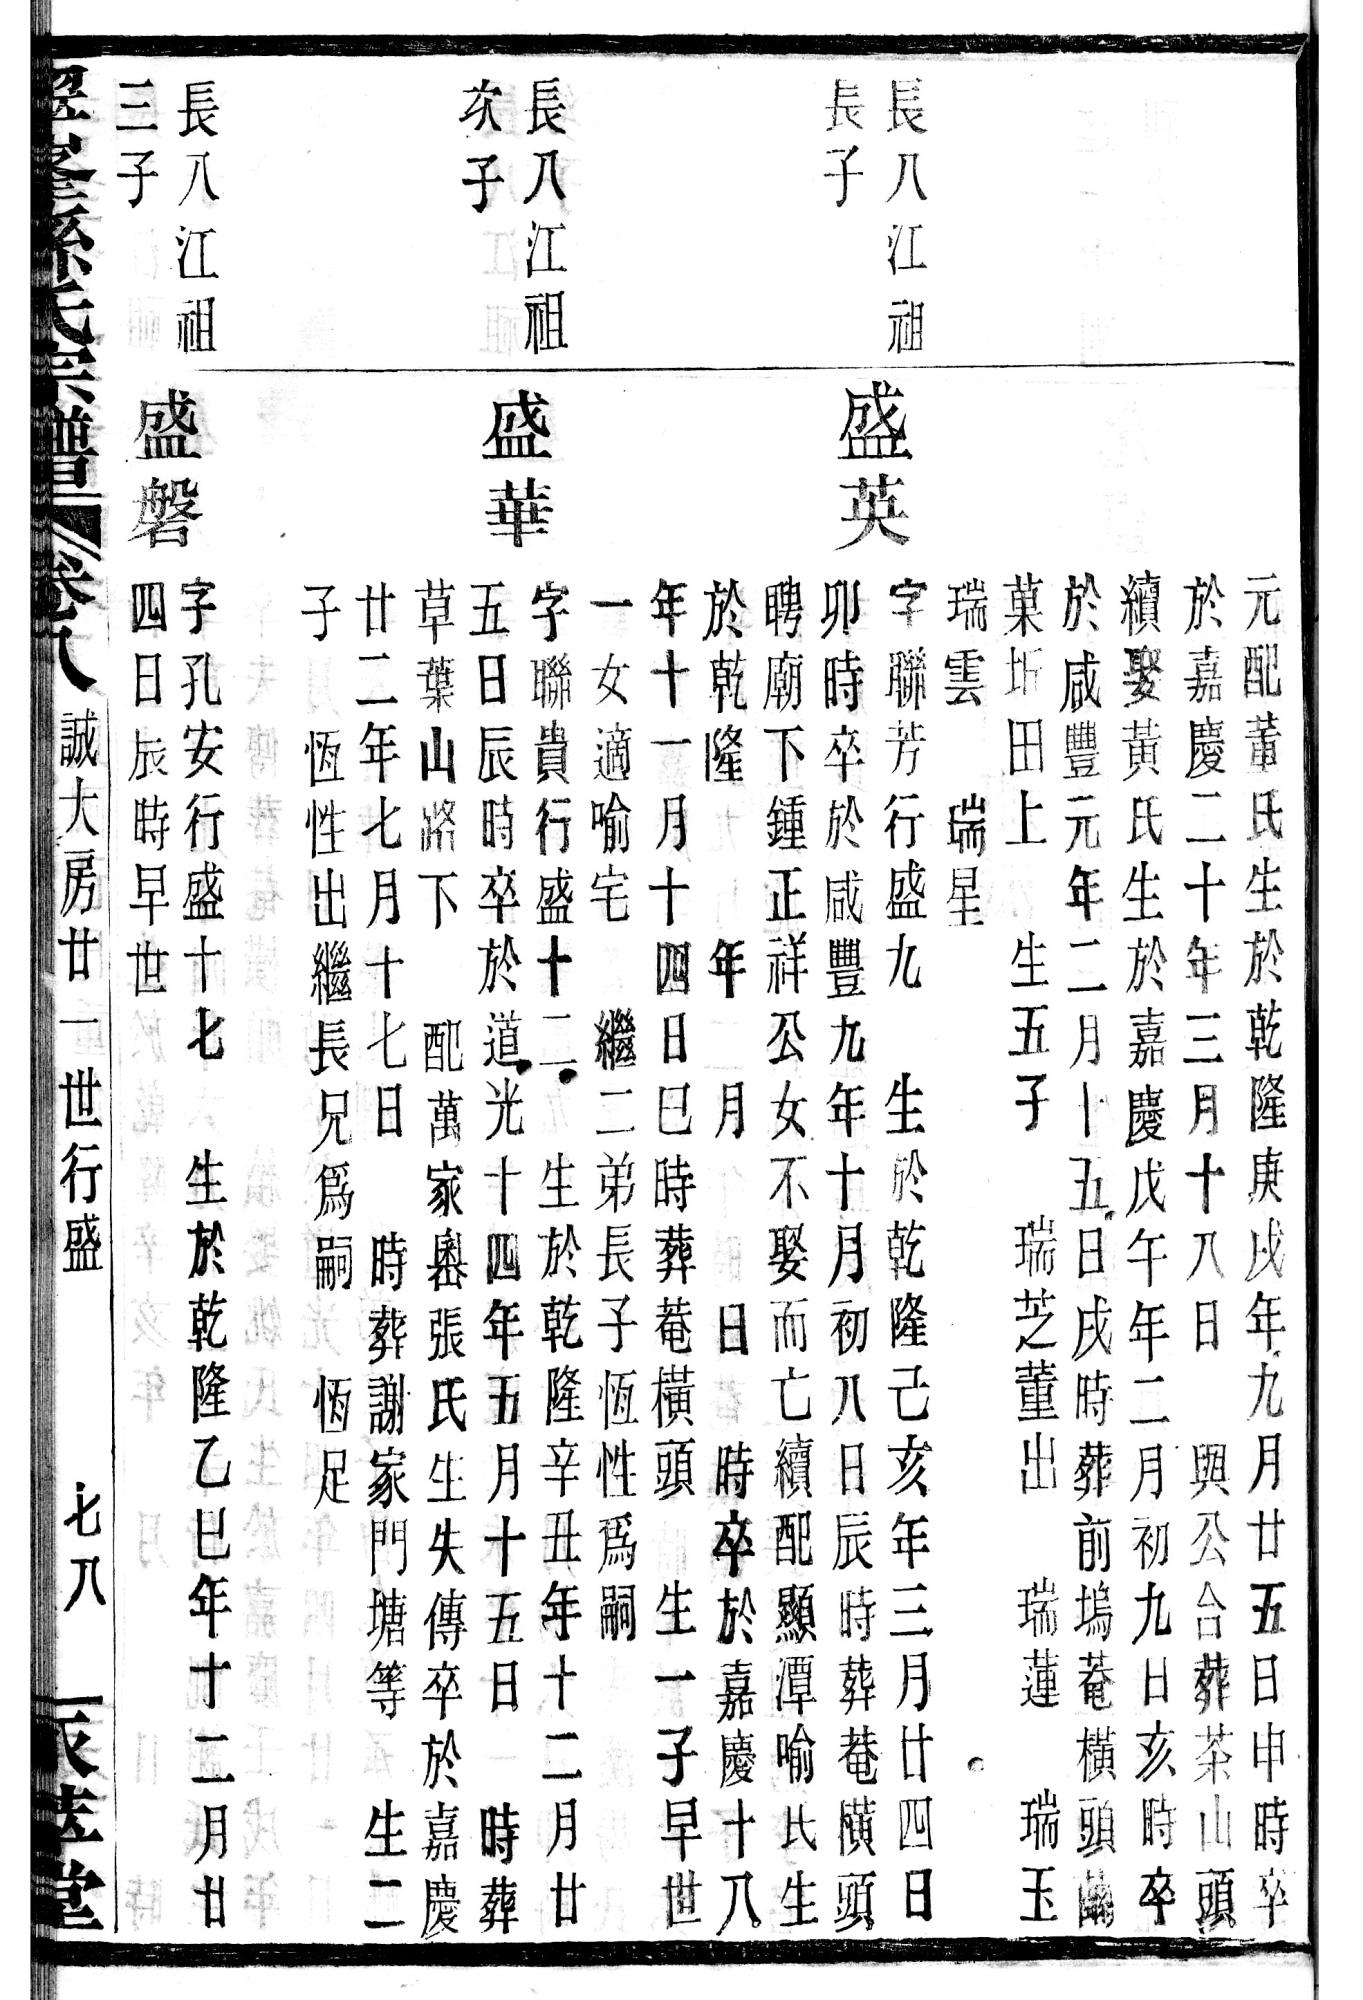 元配董氏生於乾隆庚戌年九月廿五日申時卒
於嘉慶二十年三月十八日 興公台葬茶山頭
續娶黃氏生於嘉慶戊午年二月初九日亥時卒
於咸豐元年二月十五日戌時葬前塢菴橫頭
菓坵田上 生五子 瑞芝董出 瑞蓮 瑞玉
瑞雲 瑞星
長八江祖
長子
盛英
字聯芳行盛九 生於乾隆己亥年三月廿四日
卯時卒於咸豐九年十月初八日辰時葬菴橫頭
聘廟下鍾正祥公女不娶而亡續配顯潭喻氏生
於乾隆 年 月 日 時卒於嘉慶十八
年十一月十四日巳時葬菴橫頭 生一子早世
一女適喻宅 繼二弟長子恆性爲嗣
長八江祖
次子
盛華
字聯貴行盛十二 生於乾隆辛丑年十二月廿
五日辰時卒於道光十四年五月十五日 時葬
草葉山路下 配萬家嶴張氏生失傳卒於嘉慶
廿二年七月十七日 時葬謝家門塘等 生二
子 恆性出繼長兄爲嗣 恆足
長八江祖
三子
盛磐
字孔安行盛十七 生於乾隆乙巳年十二月廿
四日辰時早世
翠峯孫氏宗譜 卷八 誠大房廿一世行盛 七八 堂